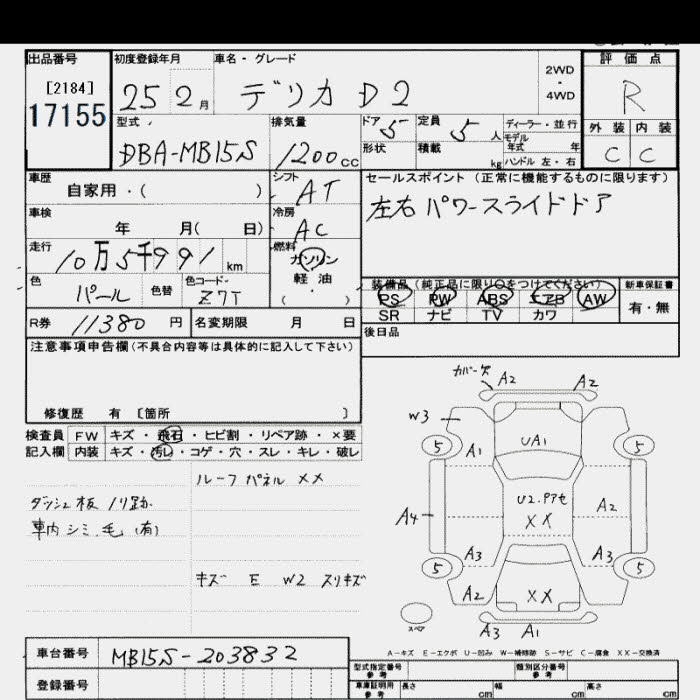 出品番号 初度登録年月 車名・グレード 評価点
[2184] 2WD
17155 25 2月 デリカ D2 ・ R
4WD
型式 排気量 ドア 5 定員 5人 ディーラー・並行 外装 内装
DBA-MB15S 1200cc モデル年式 年 C C
形状 積載 kg ハンドル 左・右
車歴 シフト セールスポイント(正常に機能するものに限ります)
自家用・( ) AT 左右パワースライドドア
車検 冷房
年 月( 日) AC
走行 燃料
10万5千991km ガソリン
色 色替 色コード 軽油 装備品(純正品に限り○をつけてください) 新車保証書
パール Z7T ( ) PS PW ABS エアB AW 有・無
SR ナビ TV カワ
R券 11380円 名変期限 月 日 後日品
注意事項申告欄(不具合内容等は具体的に記入して下さい)
修復歴 有 [箇所 ]
検査員 FW キズ・飛石・ヒビ割・リペア跡・×要
記入欄 内装 キズ・汚レ・コゲ・穴・スレ・キレ・破レ
ルーフパネル XX
ダッシュ板 ノリ跡
車内シミ、毛(有)
キズ E W2 スリキズ
カバー欠 A2 A2
W3
5 A1 UA1 5
A4 U2.P7セ A2
XX
A3 A3
5 5
A2 XX
スペア
A3 A1
A-キズ E-エクボ U-凹み W-補修跡 S-サビ C-腐食 XX-交換済
車台番号 MB15S-203832
型式指定番号 参考 類別区分番号 参考
登録番号
車庫証明用 参考 長さ cm 幅 cm 高さ cm